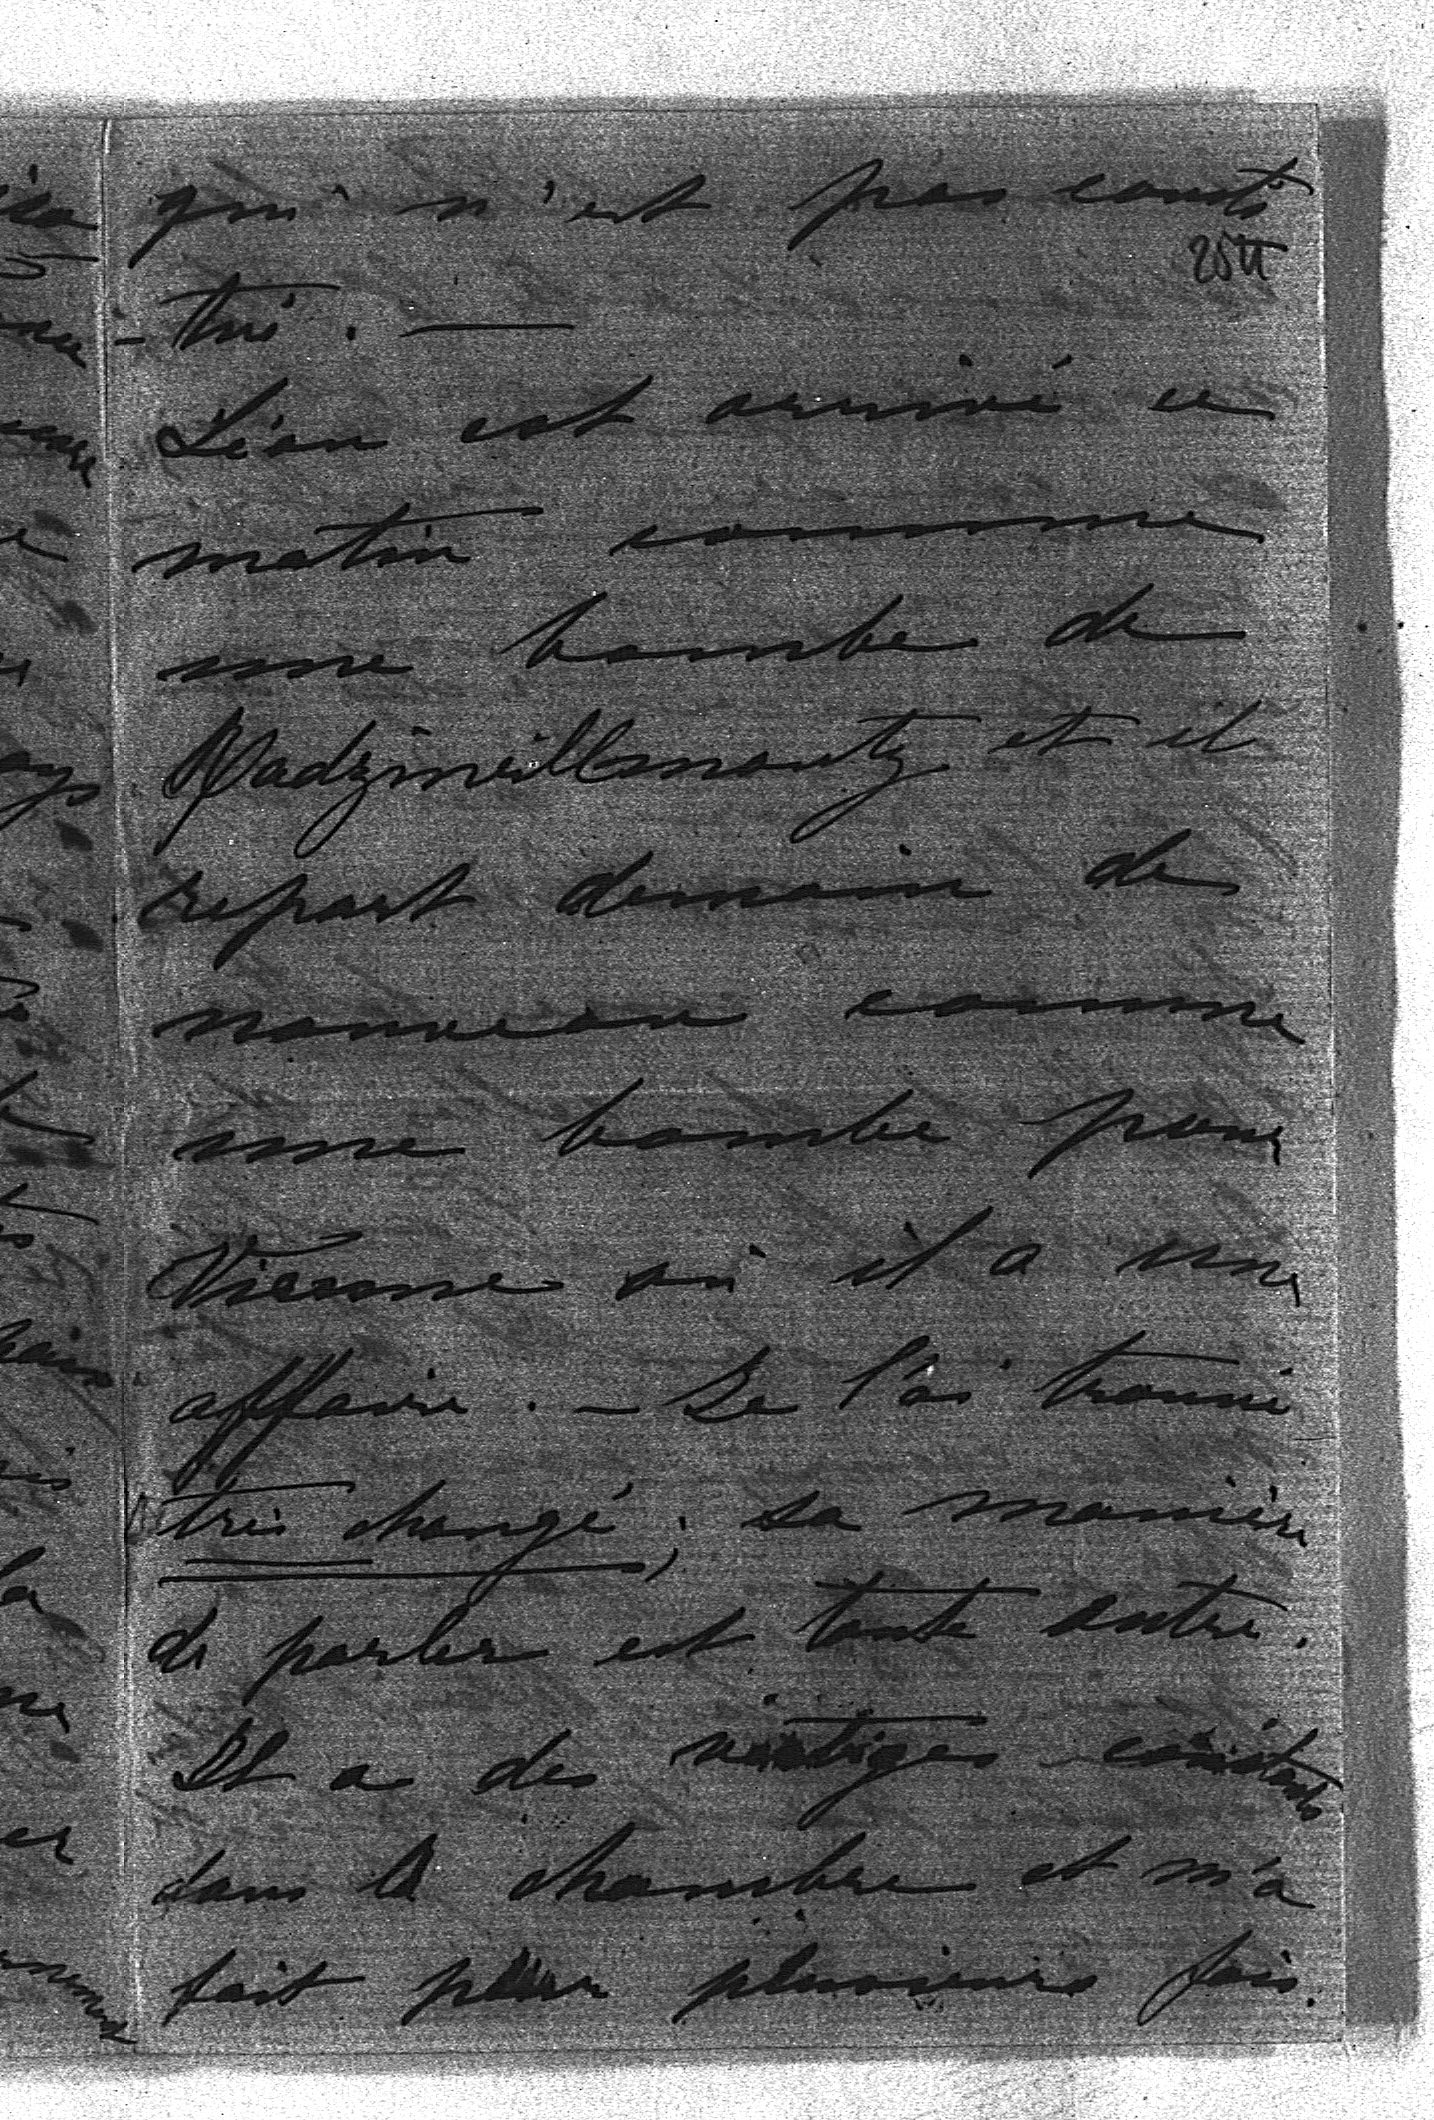 qui n'est pas consti
25
- tué. —
Léon est arrivé ce
matin comme
une bombe de
Radziwillmontz et il
repart demain de
nouveau comme
une bombe pour
Vienne où il a une
affaire. — Je l'ai trouvé
très changé, sa manière
de parler est toute autre.
Il a des vertiges constants
dans la chambre et m'a
fait peur plusieurs fois.